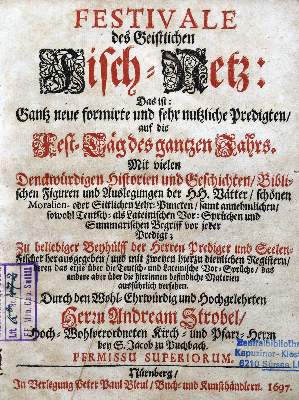 FESTIVALE
des Geistlichen
Fisch-Netz:
Das ist:
Gantz neue formirte und sehr nutzliche Predigten/
auf die
Fest-Täg des gantzen Jahrs.
Mit vielen
Denckwürdigen Historien und Geschichten/ Bibli-
schen Figuren und Auslegungen der HH. Vätter/ schönen
Moralien- oder Sittlichen Lehr-Puncten/ samt annehmlichen/
sowohl Teutsch- als Lateinischen Vor-Sprüchen und
Summarischen Begriff vor jeder
Predigt;
Zu beliebiger Beyhülff der Herren Prediger und Seelen-
Fischer herausgegeben/ und mit zweyen hierzu dienlichen Registern/
deren das erste über die Teutsch- und Lateinische Vor-Sprüche/ das
andere aber über die hierinnen befindliche Materien
ausführlich verfasset.
Durch den Wohl-Ehrwürdig und Hochgelehrten
Herrn Andream Strobel/
Hoch-Wohlverordneten Kirch- und Pfarr-Herrn
bey S. Jacob zu Puchbach.
PERMISSU SUPERIORUM.
Nürnberg/
In Verlegung Peter Paul Bleul/ Buch- und Kunsthändlern. 1697.
Zentralbibliothek
Kapuziner-Klos
6210 Sursee LU